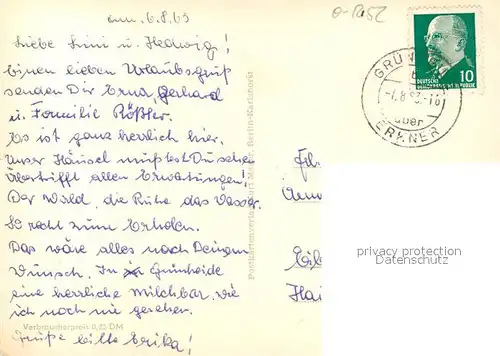 am, 6.8.63
Liebe Leni u. Hedwig!
Einen lieben Urlaubsgruß
senden Dir Erna, Gerhard
u. Familie Rößler.
Es ist ganz herrlich hier.
Unser Häusel müßtest Du sehen
Übertrifft allen Erwartungen!
Der Wald, die Ruhe das Wasser.
So recht zum Erholen.
Das wäre alles nach Deinem
Wunsch. In Grünheide
eine herrliche Milchbar, wie
ich noch nie gesehen.
Verbraucherpreis 0,20 DM
Grüße bitte Erika!
Berlin-Karlshorst
GRÜN
über
ERKNER
DEUTSCHE
DEMOKRATISCHE REPUBLIK
10
privacy protection
Datenschutz